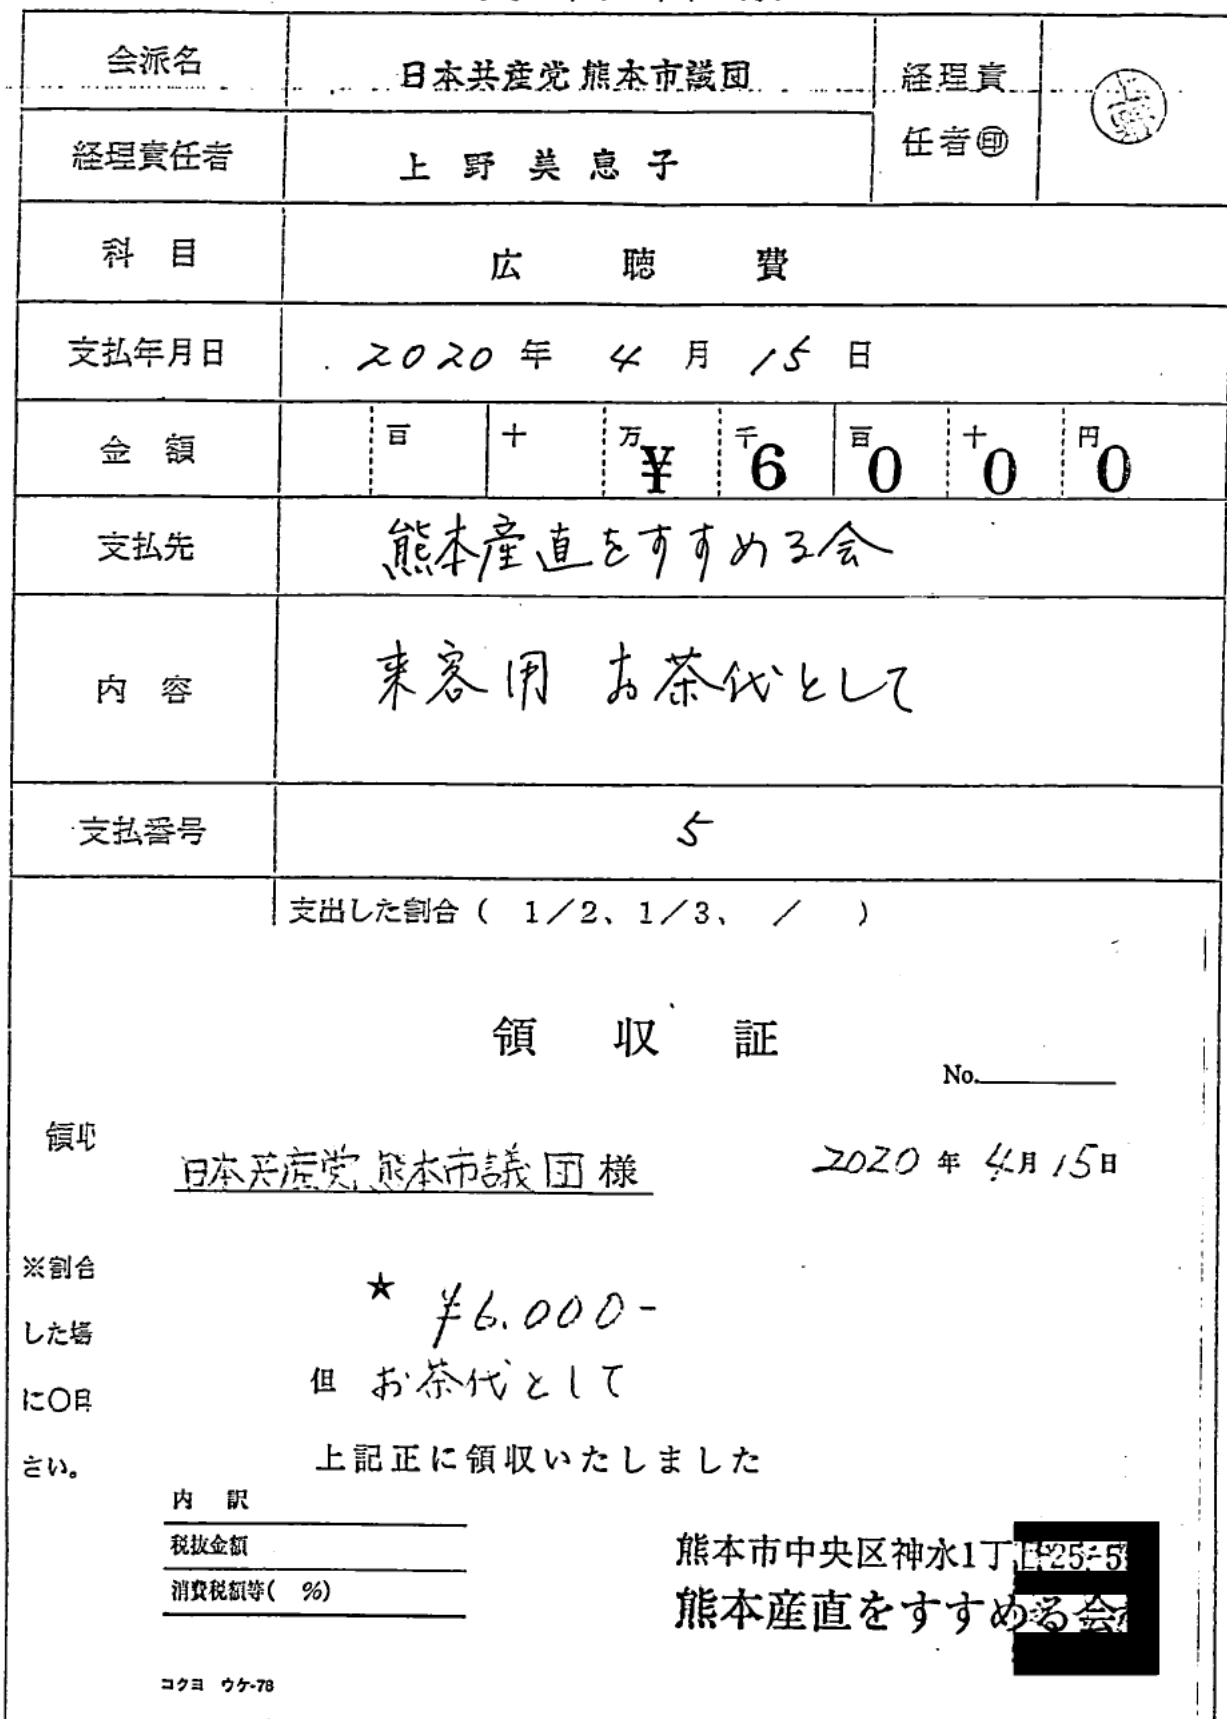 会派名 日本共産党 熊本市議団 経理責任者㊞ 上野
経理責任者 上野美恵子
科目 広聴費
支払年月日 2020年 4月 15日
金額 百 十 万 ¥ 千 6 百 0 十 0 円 0
支払先 熊本産直をすすめる会
内容 来客用 お茶代として
支払番号 5
支出した割合（ 1／2、1／3、 ／ ）
領収証
No.
領収
日本共産党 熊本市議団 様 2020年 4月 15日
※割合
した場
に〇
さい。
★ ¥6.000-
但 お茶代として
上記正に領収いたしました
内訳
税抜金額
消費税額等( %)
熊本市中央区神水1丁目25-5
熊本産直をすすめる会
コクヨ ウケ-78